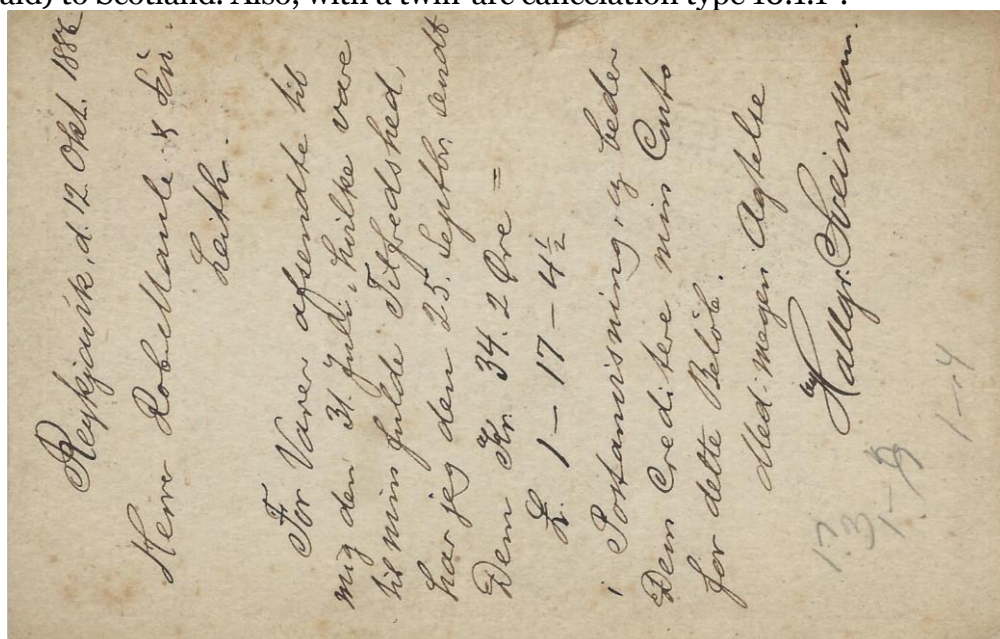 aid) to Scotland. Also, with a twin-arc cancelation type 13.1.1".
Reykjavík, d. 12. Okt. 1886
Herr Rob. Maule & Sön.
Leith.
For Varer afsendte til
mig den 31. Juli, hvilke vare
til min fulde Tilfredshed,
har jeg den 25. Septbr. sendt
Dem Kr. 34. 2 Øre =
£. 1 – 17 – 4½
i Postanvisning, og beder
Dem Creditere min Conto
for dette Belöb.
Med megen Agtelse
Hallgr. Sveinsson.
1 – 4